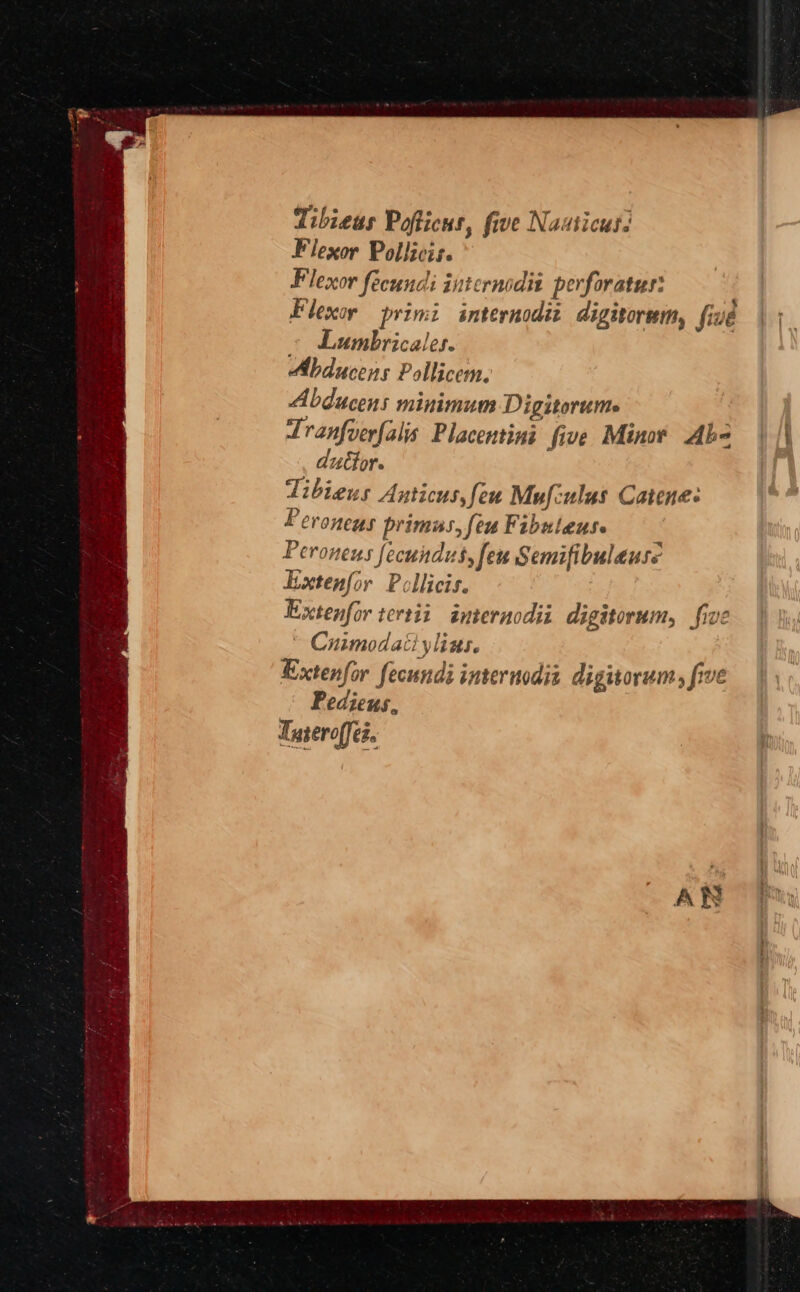 Tibiæus Poſticus, ſive Nauticus:
Flexor Pollicis.
Flexor ſecundi internodii perforatus:
Flexor primi internodii digitorum, ſivé
Lumbricales.
Abducens Pollicem.
Abducens minimum Digitorum.
Tranſverſalis Placentini ſive Minor Ab-
ductor.
Tibiæus Anticus, ſeu Muſculus Catenæ:
Peroneus primus, ſeu Fibulæus.
Peroneus ſecundus, ſeu Semifibulæus:
Extenſor Pollicis.
Extenſor tertii internodii digitorum, ſive
Cnimodactylius.
Extenſor ſecundi internodii digitorum, ſive
Pediæus,
Interoſſei.
AN